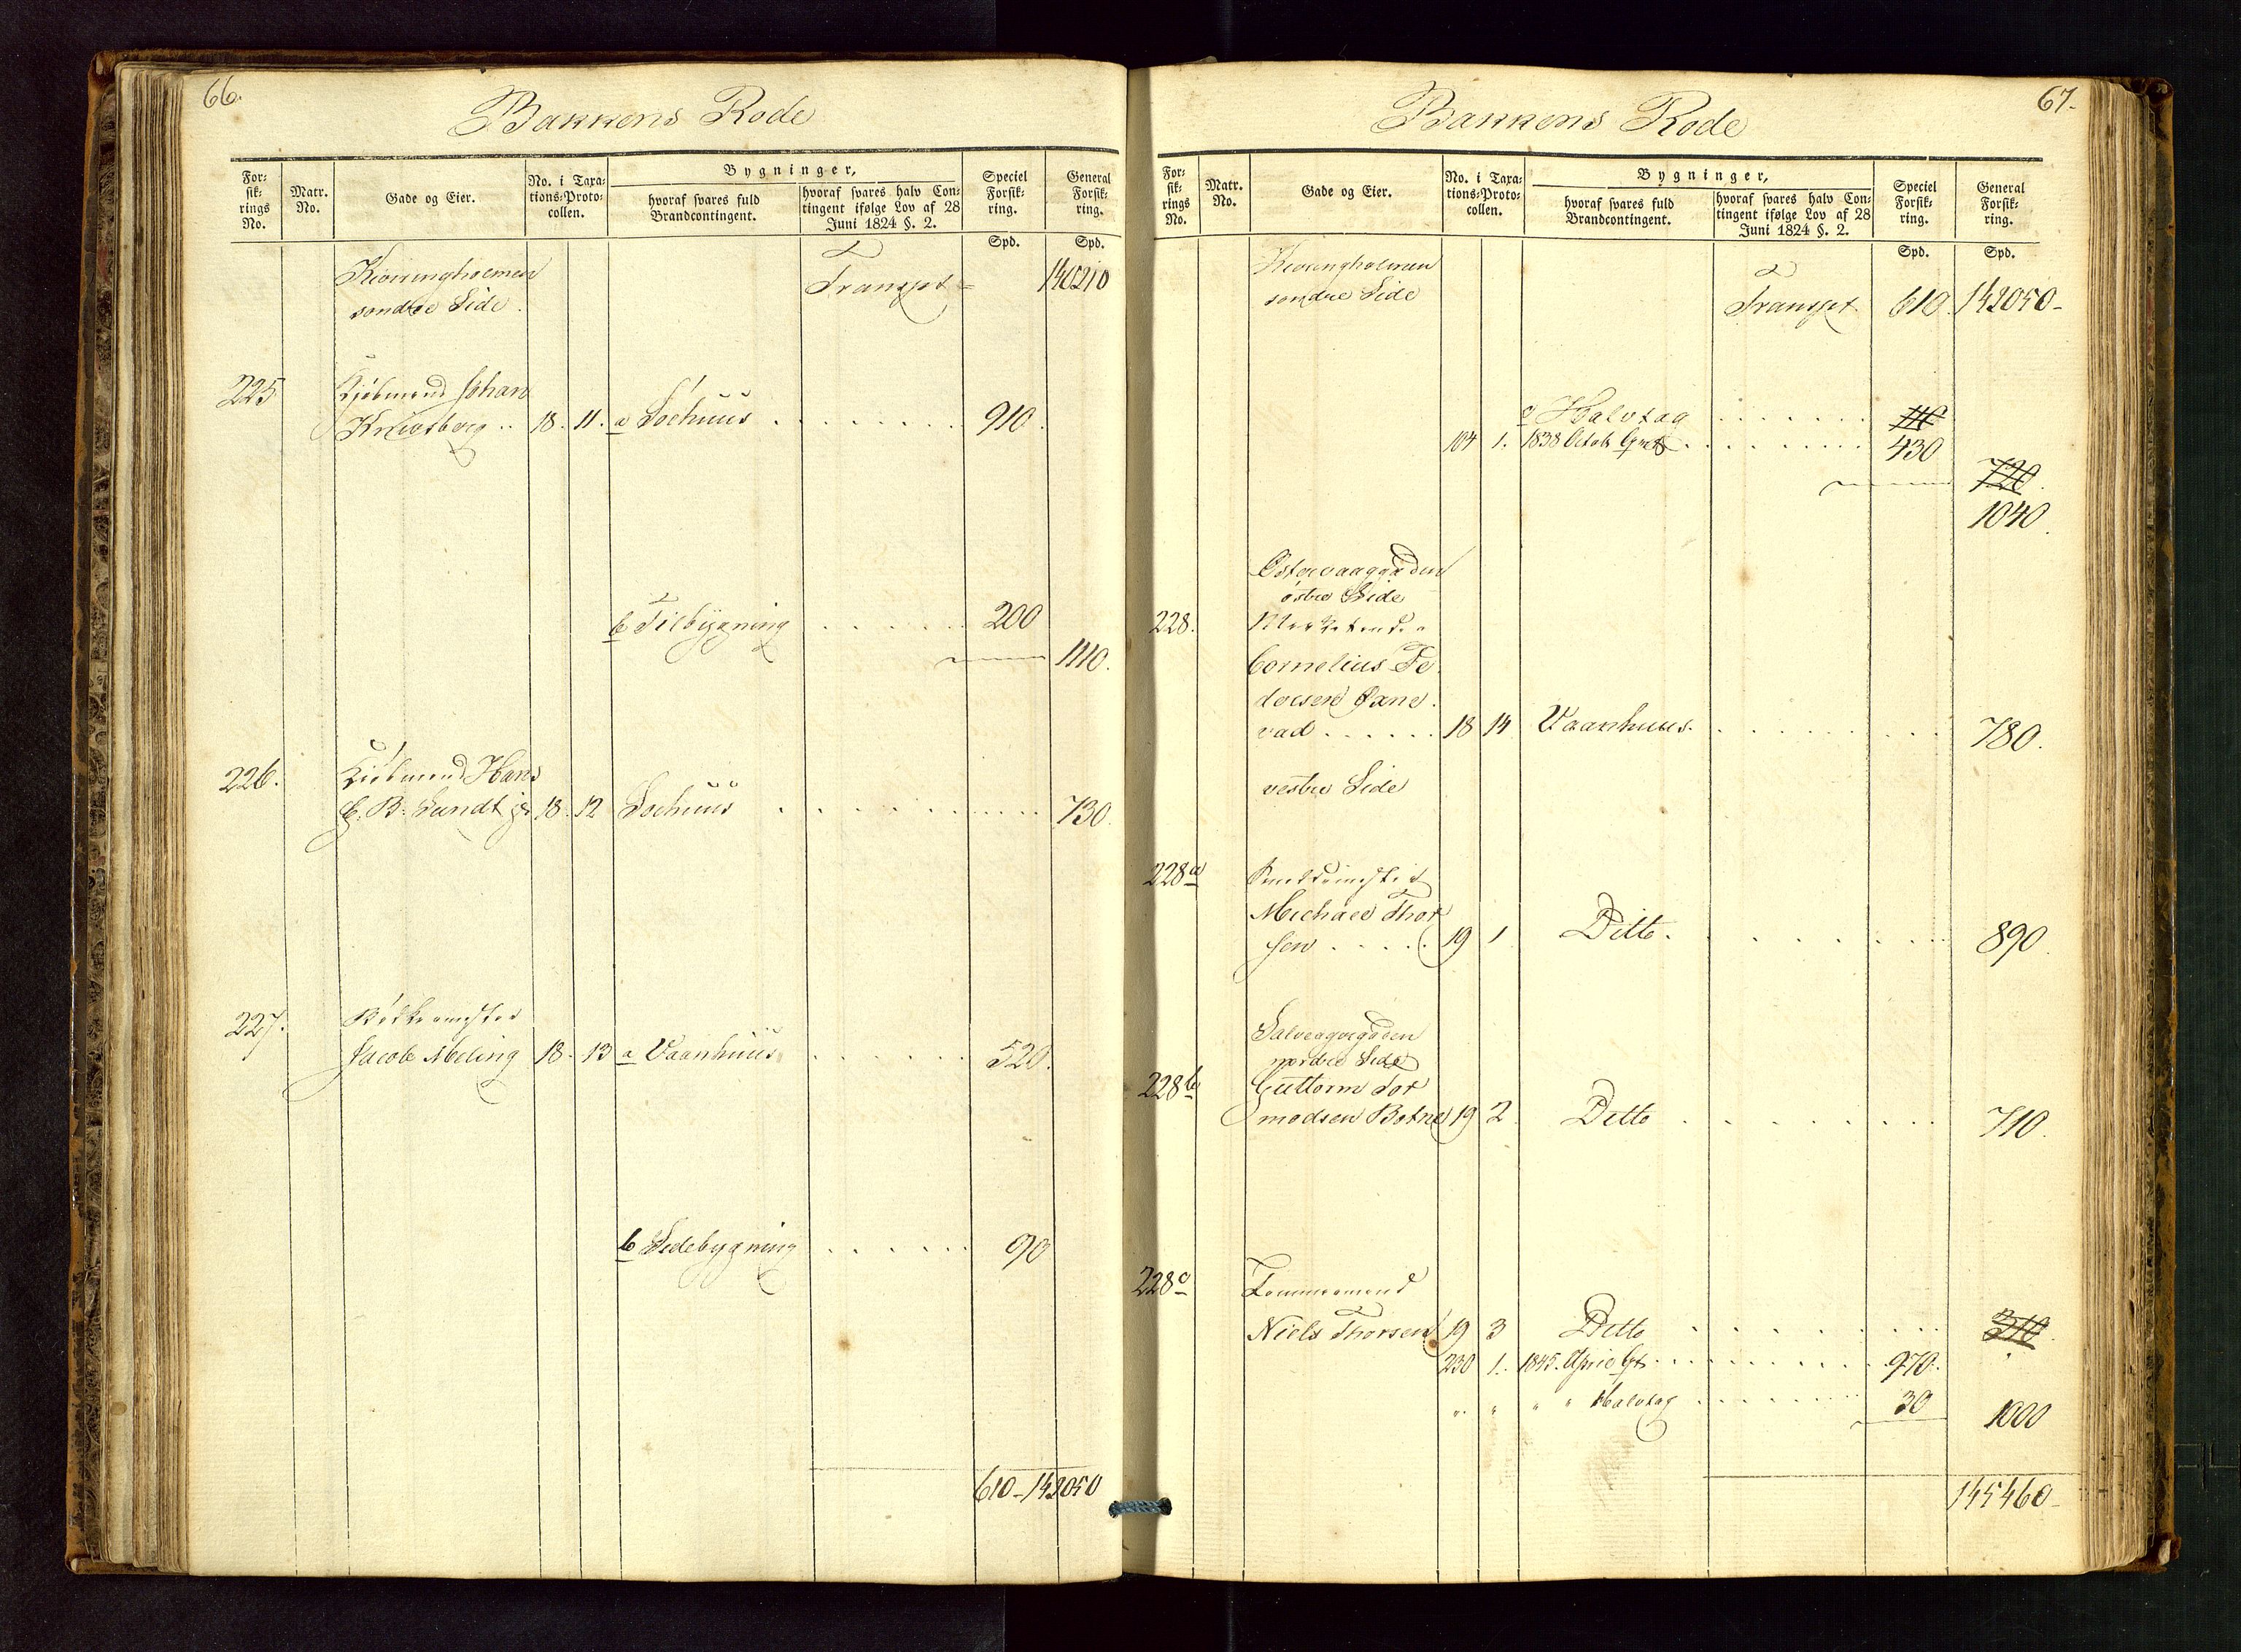 66.
Bakkens Rode
For=
sik=
rings
No.
Matr.
No.
Gade og Eier.
No. i Taxa=
tions=Proto=
collen.
Bygninger,
hvoraf svares fuld
Brandcontingent.
hvoraf svares halv Con=
tingent ifølge Lov af 28
Juni 1824 §. 2.
Speciel
Forsik=
ring.
General
Forsik=
ring.
Spd.
Spd.
Kioeringholmen
søndre Side.
Transpt = 140210
225 Kjøbmand Johan
Kneesberg .. 18. 11. a Søehuus . . . . . . . 910.
b Tilbygning . . . . . . 200
1110.
226. Kjøbmand Hans
E. B. Sundt jr 18. 12 Søehuus . . . . . . . 730.
227. Bødkermester
Jacob Meling 18. 13 a Vaanhuus . . . . . . 520.
b Sidebygning . . . . . . 90
610 - 142050
67.
Bakkens Rode
For=
sik=
rings
No.
Matr.
No.
Gade og Eier.
No. i Taxa=
tions=Proto=
collen.
Bygninger,
hvoraf svares fuld
Brandcontingent.
hvoraf svares halv Con=
tingent ifølge Lov af 28
Juni 1824 §. 2.
Speciel
Forsik=
ring.
General
Forsik=
ring.
Spd.
Spd.
Kioeringholmen
søndre Side
Transpt 610. 142050-
c Halvtag . . . . . . . 110
104 1. 1838 Octob . . . . . . . 430
720.
1040.
Østervaaggaden
østre Side
228.
Cornelius Te
dorsen Øxne
vad . . . . . . 18 14 Vaanhuus. . . . . . . . 780.
vestre Side
228a
Michael Thor
sen . . . . . 19 1 Ditto. . . . . . . . 890.
Salvaagergaden
nordre Side
228b Guttorm Tor
modsen Botne 19 2. Ditto . . . . . . . 710.
228c Tømmermand
Niels Thorsen 19 3 Ditto . . . . . . . 310.
230 1. 1845. April . . . . . . . 970.
" " " " Halvtag . . . . . . . 30 1000
145460-